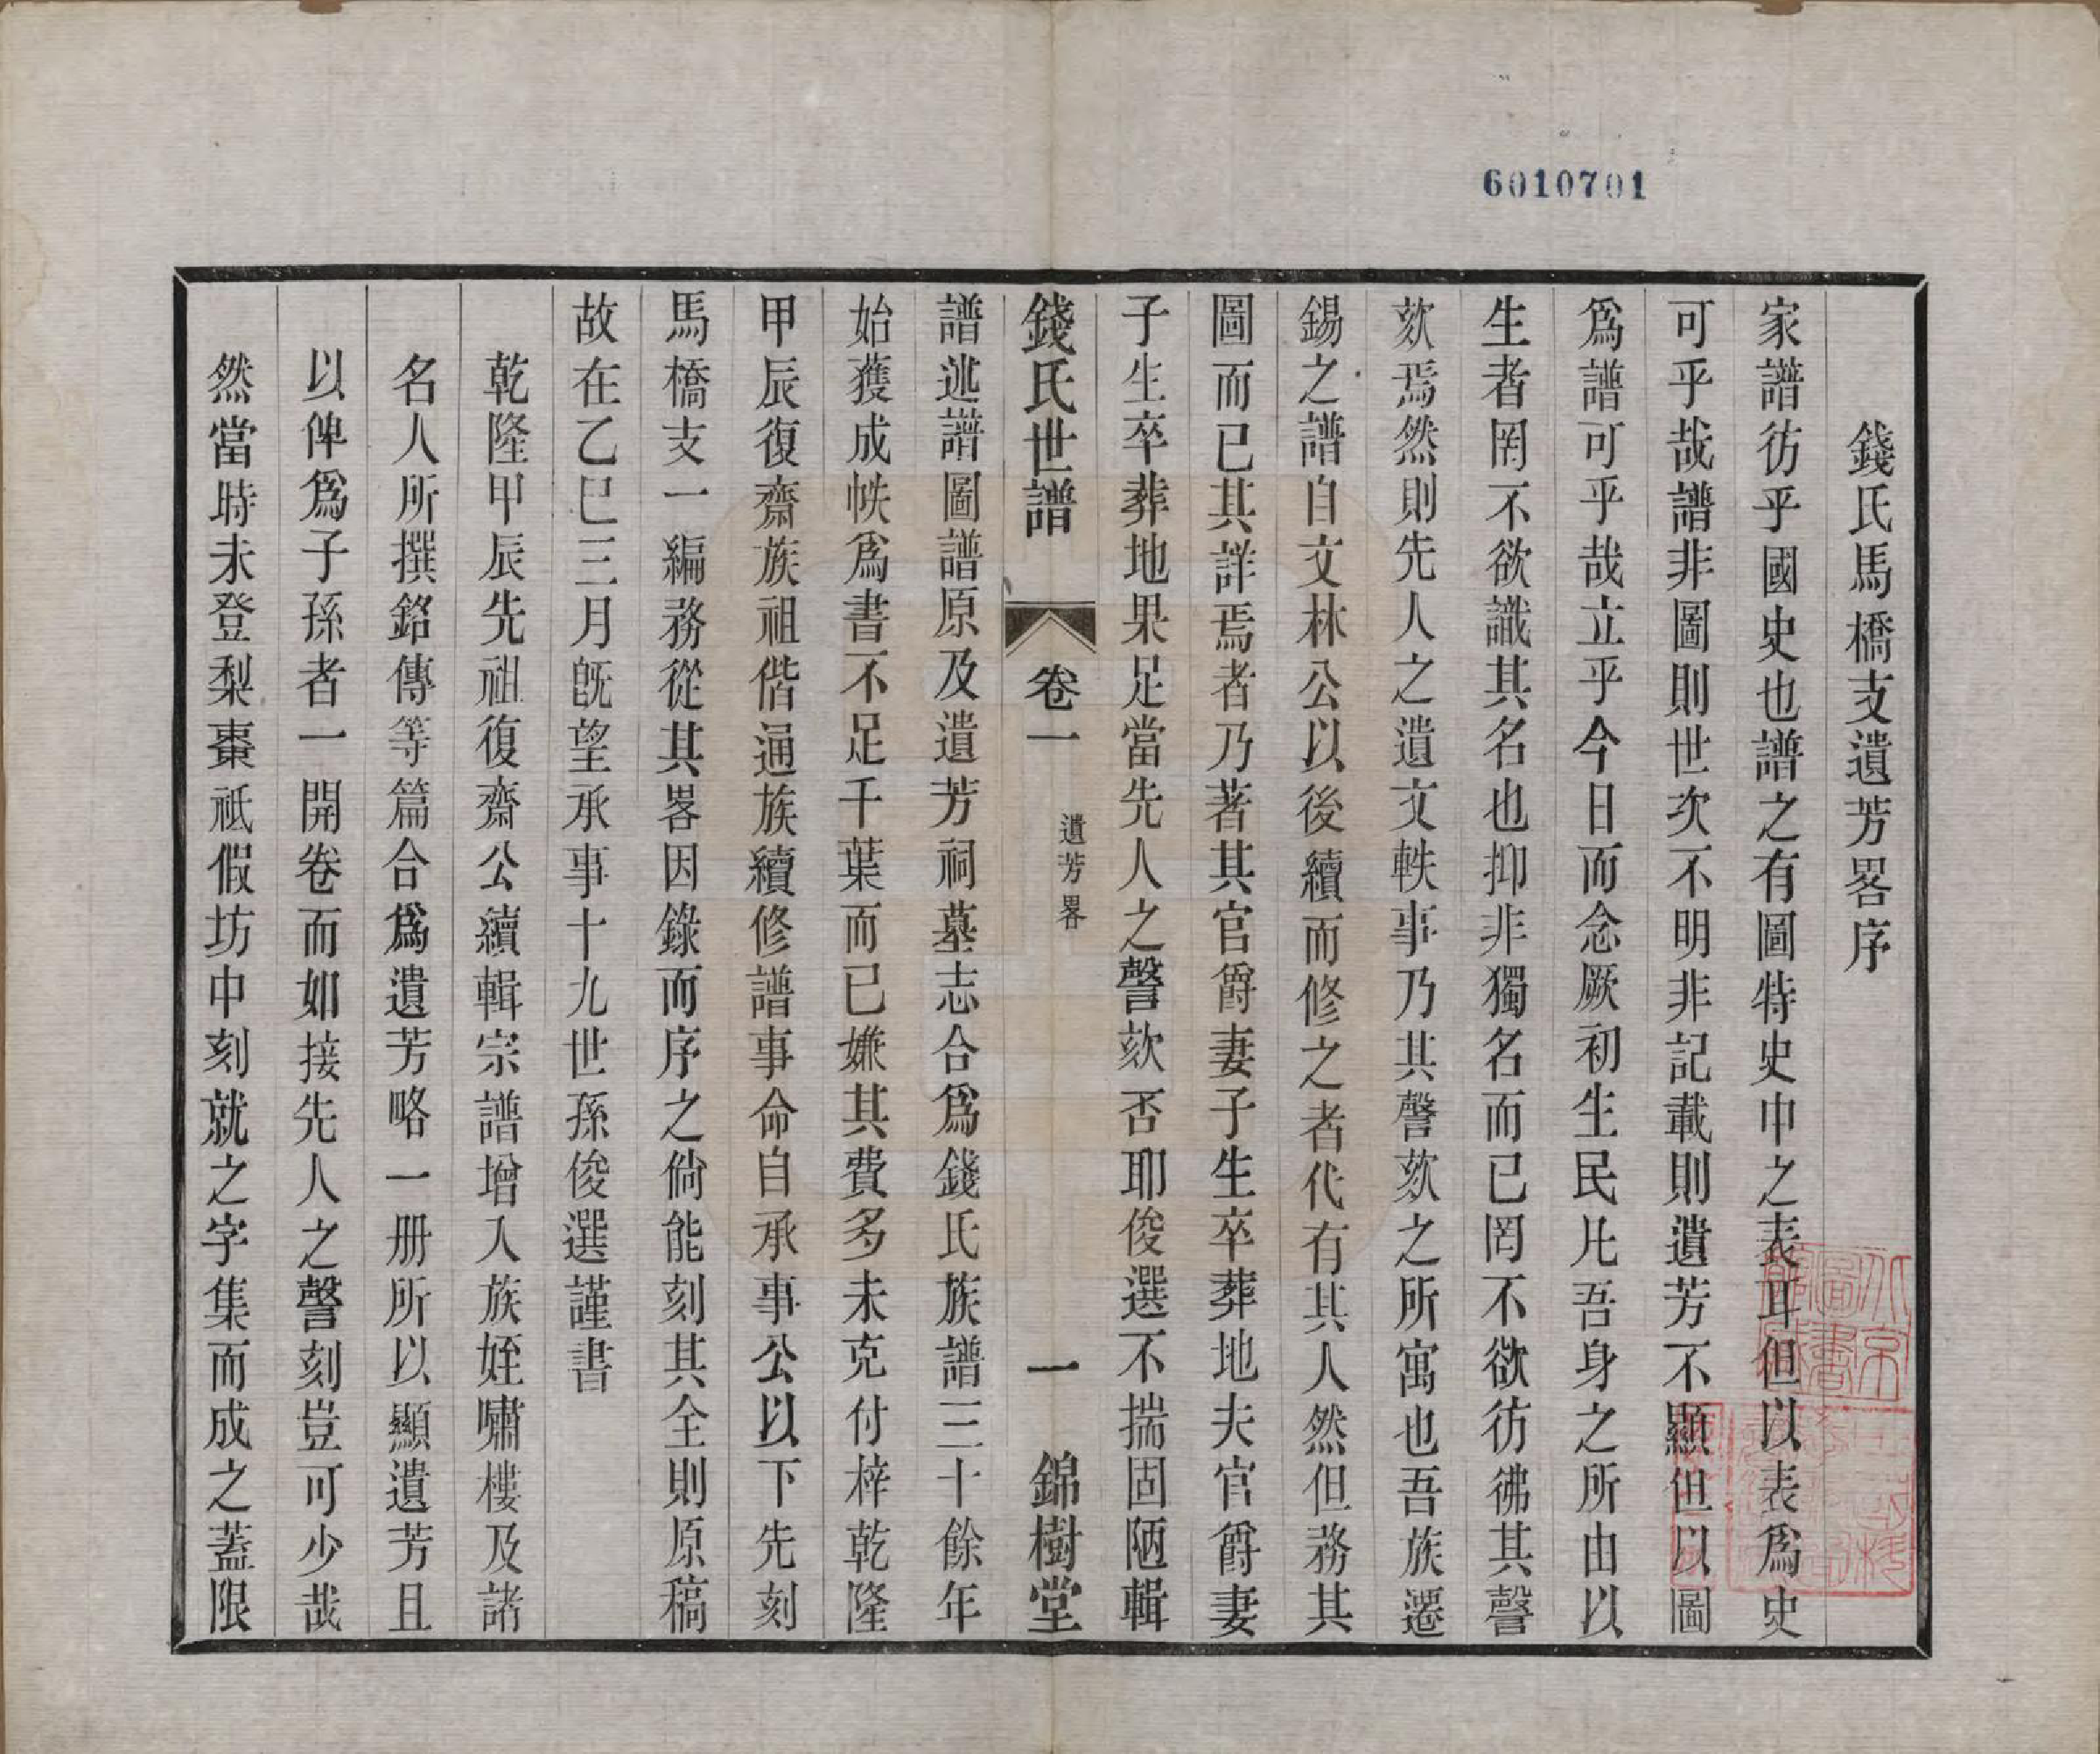 6010701
錢氏馬橋支遺芳畧序
家譜彷乎國史也譜之有圖特史中之表耳但以表爲史
可乎哉譜非圖則世次不明非記載則遺芳不顯但以圖
爲譜可乎哉立乎今日而念厥初生民凡吾身之所由以
生者罔不欲識其名也抑非獨名而已罔不欲彷彿其謦
欬焉然則先人之遺文軼事乃其謦欬之所寓也吾族遷
錫之譜自文林公以後續而修之者代有其人然但務其
圖而已其詳焉者乃著其官爵妻子生卒葬地夫官爵妻
子生卒葬地果足當先人之謦欬否耶俊選不揣固陋輯
錢氏世譜 卷一 遺芳畧 一 錦樹堂
譜述譜圖譜原及遺芳祠墓志合爲錢氏族譜三十餘年
始獲成帙爲書不足千葉而已嫌其費多未克付梓乾隆
甲辰復齋族祖偕通族續修譜事命自承事公以下先刻
馬橋支一編務從其畧因錄而序之倘能刻其全則原稿
故在乙巳三月旣望承事十九世孫俊選謹書
乾隆甲辰先祖復齋公續輯宗譜增入族姪嘯樓及諸
名人所撰銘傳等篇合爲遺芳略一册所以顯遺芳且
以俾爲子孫者一開卷而如接先人之謦刻豈可少哉
然當時未登梨棗祗假坊中刻就之字集而成之蓋限
北京圖書館藏